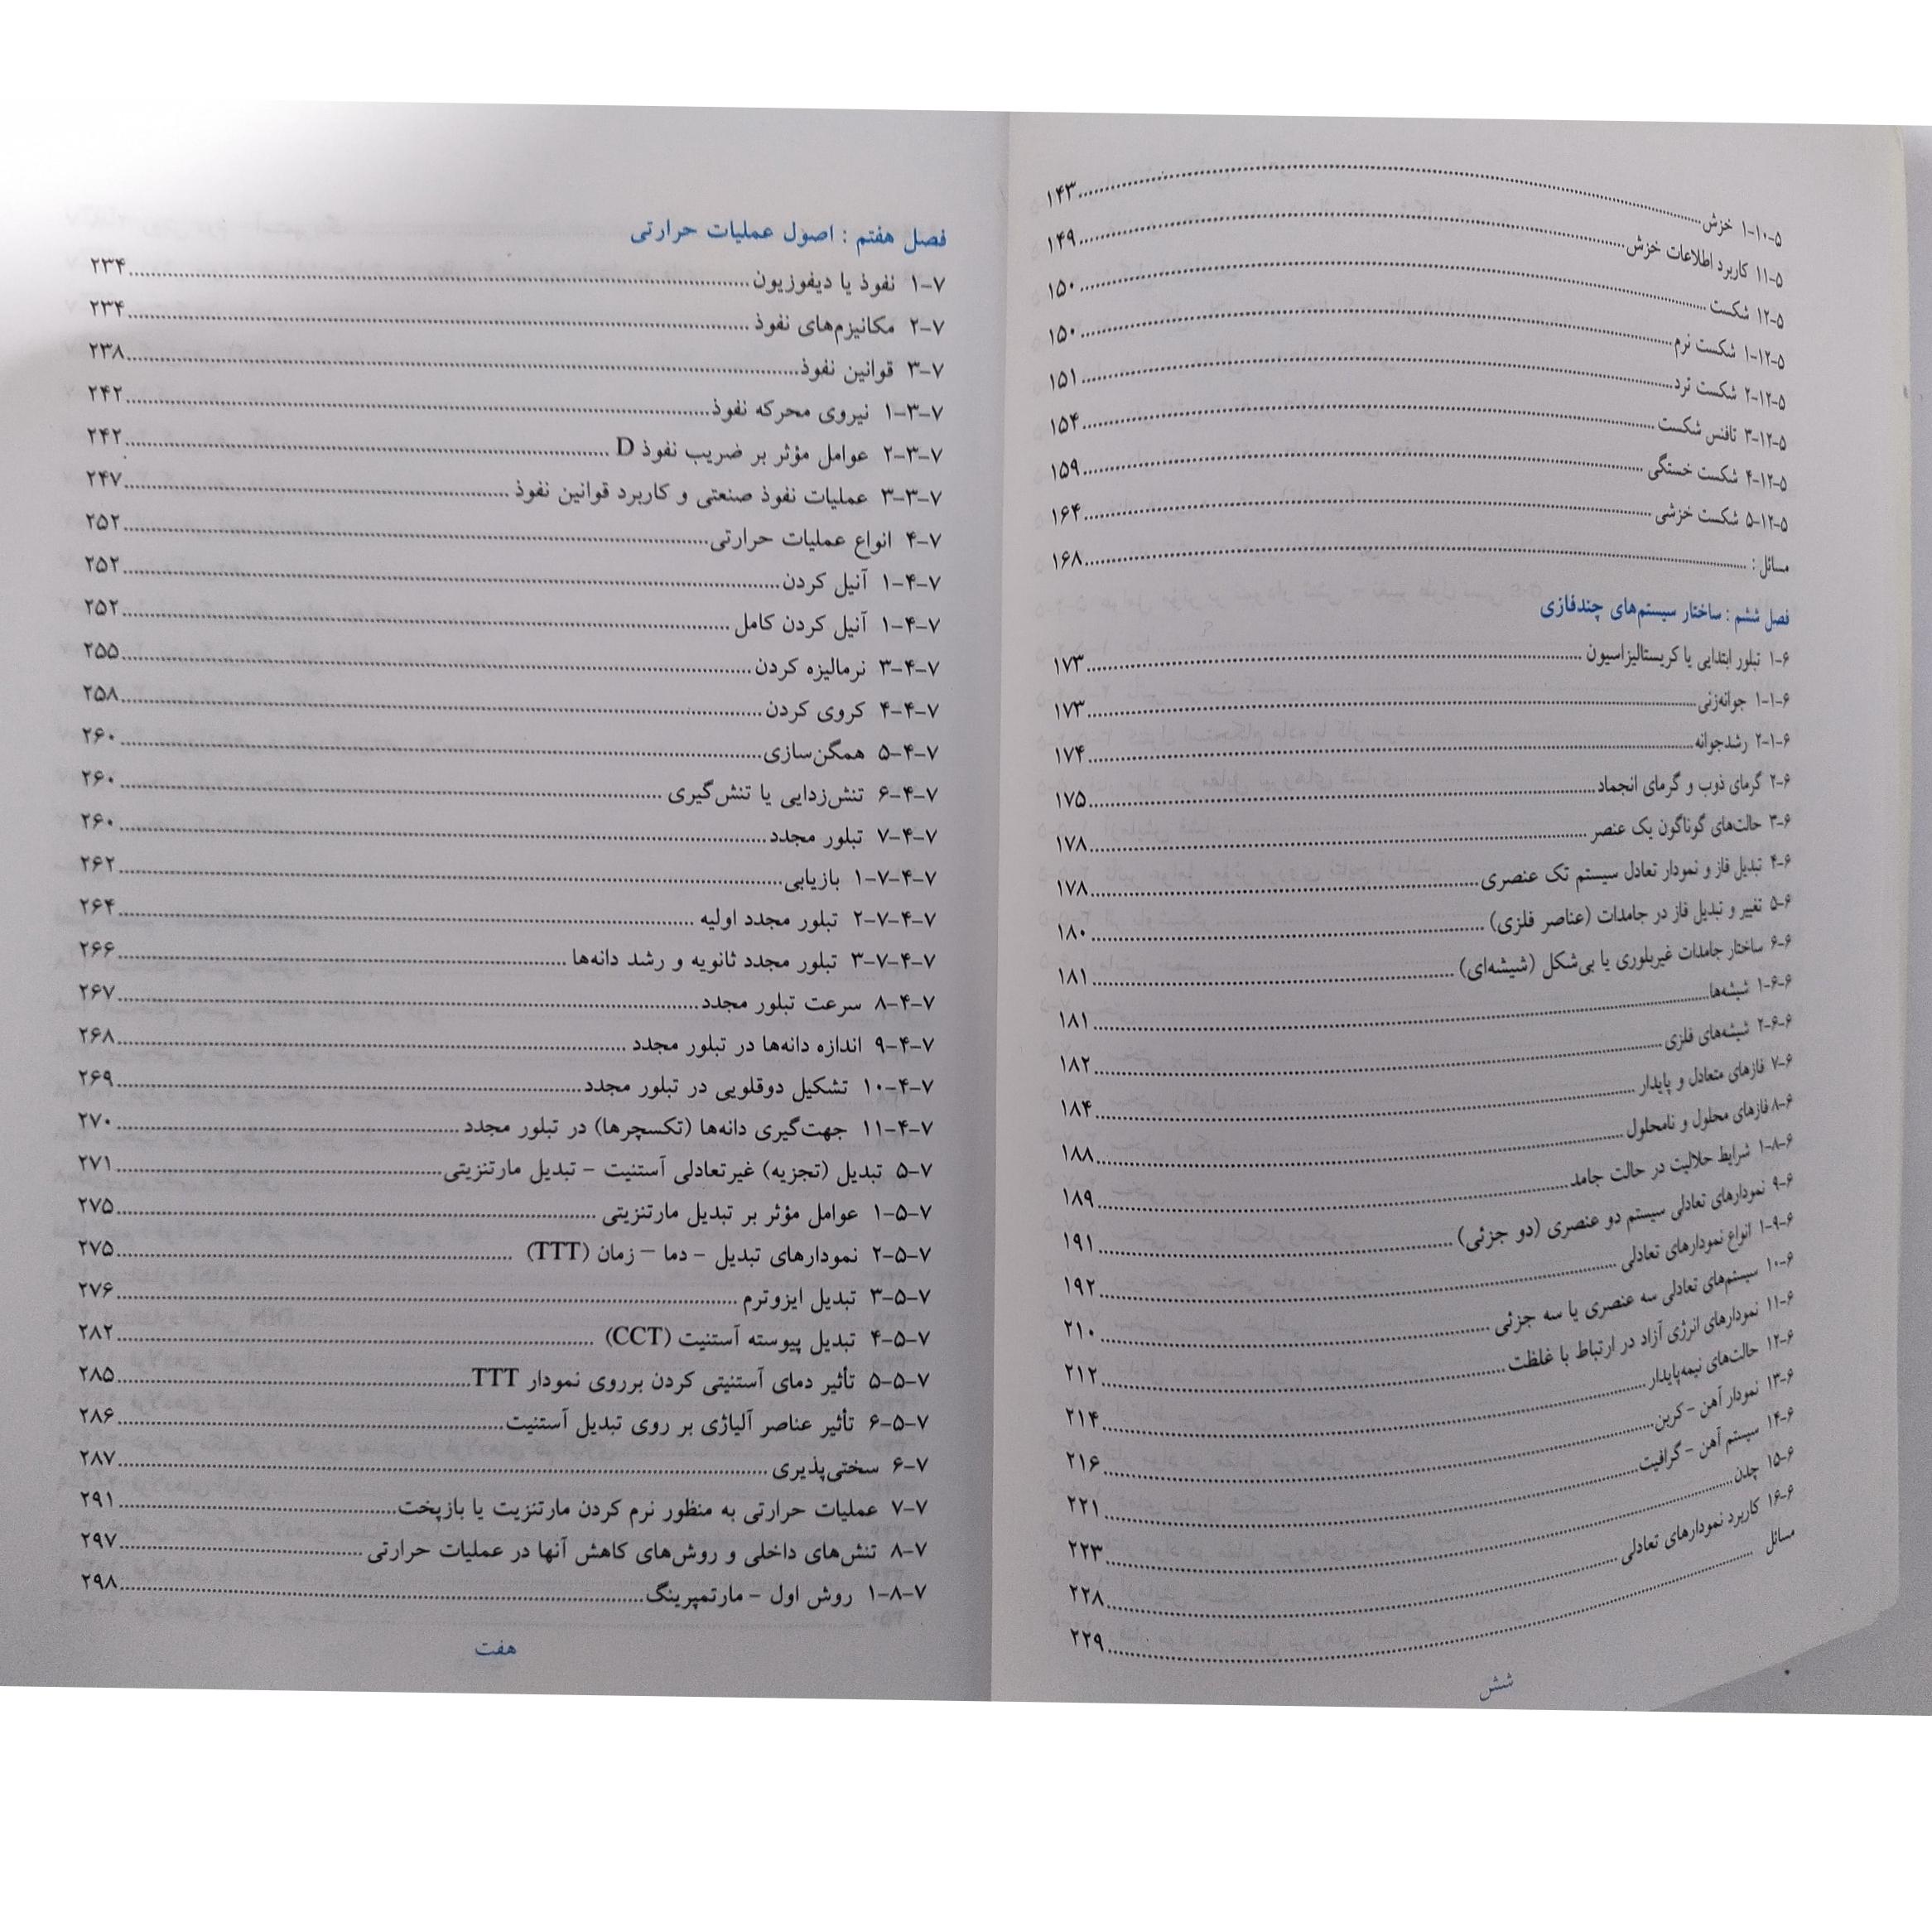 ۵-۱۰-۱ خزش ........ ۱۴۳
۵-۱۱ کاربرد اطلاعات خزش ........ ۱۴۹
۵-۱۲ شکست ........ ۱۵۰
۵-۱۲-۱ شکست نرم ........ ۱۵۰
۵-۱۲-۲ شکست ترد ........ ۱۵۱
۵-۱۲-۳ تافنس شکست ........ ۱۵۴
۵-۱۲-۴ شکست خستگی ........ ۱۵۹
۵-۱۲-۵ شکست خزشی ........ ۱۶۴
مسائل : ........ ۱۶۸
فصل ششم : ساختار سیستم‌های چندفازی
۶-۱ تبلور ابتدایی یا کریستالیزاسیون ........ ۱۷۳
۶-۱-۱ جوانه‌زنی ........ ۱۷۳
۶-۱-۲ رشدجوانه ........ ۱۷۴
۶-۲ گرمای ذوب و گرمای انجماد ........ ۱۷۵
۶-۳ حالت‌های گوناگون یک عنصر ........ ۱۷۸
۶-۴ تبدیل فاز و نمودار تعادل سیستم تک عنصری ........ ۱۷۸
۶-۵ تغییر و تبدیل فاز در جامدات (عناصر فلزی) ........ ۱۸۰
۶-۶ ساختار جامدات غیربلوری یا بی‌شکل (شیشه‌ای) ........ ۱۸۱
۶-۶-۱ شیشه‌ها ........ ۱۸۱
۶-۶-۲ شیشه‌های فلزی ........ ۱۸۲
۶-۷ فازهای متعادل و پایدار ........ ۱۸۴
۶-۸ فازهای محلول و نامحلول ........ ۱۸۸
۶-۸-۱ شرایط حلالیت در حالت جامد ........ ۱۸۹
۶-۹ نمودارهای تعادلی سیستم دو عنصری (دو جزئی) ........ ۱۹۱
۶-۹-۱ انواع نمودارهای تعادلی ........ ۱۹۲
۶-۱۰ سیستم‌های تعادلی سه عنصری یا سه جزئی ........ ۲۱۰
۶-۱۱ نمودارهای انرژی آزاد در ارتباط با غلظت ........ ۲۱۲
۶-۱۲ حالت‌های نیمه‌پایدار ........ ۲۱۴
۶-۱۳ نمودار آهن - کربن ........ ۲۱۶
۶-۱۴ سیستم آهن - گرافیت ........ ۲۲۱
۶-۱۵ چدن ........ ۲۲۳
۶-۱۶ کاربرد نمودارهای تعادلی ........ ۲۲۸
مسائل ........ ۲۲۹
شش
فصل هفتم : اصول عملیات حرارتی
۷-۱ نفوذ یا دیفوزیون ........ ۲۳۴
۷-۲ مکانیزم‌های نفوذ ........ ۲۳۴
۷-۳ قوانین نفوذ ........ ۲۳۸
۷-۳-۱ نیروی محرکه نفوذ ........ ۲۴۲
۷-۳-۲ عوامل مؤثر بر ضریب نفوذ D ........ ۲۴۲
۷-۳-۳ عملیات نفوذ صنعتی و کاربرد قوانین نفوذ ........ ۲۴۷
۷-۴ انواع عملیات حرارتی ........ ۲۵۲
۷-۴-۱ آنیل کردن ........ ۲۵۲
۷-۴-۱ آنیل کردن کامل ........ ۲۵۲
۷-۴-۳ نرمالیزه کردن ........ ۲۵۵
۷-۴-۴ کروی کردن ........ ۲۵۸
۷-۴-۵ همگن‌سازی ........ ۲۶۰
۷-۴-۶ تنش‌زدایی یا تنش‌گیری ........ ۲۶۰
۷-۴-۷ تبلور مجدد ........ ۲۶۰
۷-۴-۷-۱ بازیابی ........ ۲۶۲
۷-۴-۷-۲ تبلور مجدد اولیه ........ ۲۶۴
۷-۴-۷-۳ تبلور مجدد ثانویه و رشد دانه‌ها ........ ۲۶۶
۷-۴-۸ سرعت تبلور مجدد ........ ۲۶۷
۷-۴-۹ اندازه دانه‌ها در تبلور مجدد ........ ۲۶۸
۷-۴-۱۰ تشکیل دوقلویی در تبلور مجدد ........ ۲۶۹
۷-۴-۱۱ جهت‌گیری دانه‌ها (تکسچرها) در تبلور مجدد ........ ۲۷۰
۷-۵ تبدیل (تجزیه) غیرتعادلی آستنیت - تبدیل مارتنزیتی ........ ۲۷۱
۷-۵-۱ عوامل مؤثر بر تبدیل مارتنزیتی ........ ۲۷۵
۷-۵-۲ نمودارهای تبدیل - دما – زمان (TTT) ........ ۲۷۵
۷-۵-۳ تبدیل ایزوترم ........ ۲۷۶
۷-۵-۴ تبدیل پیوسته آستنیت (CCT) ........ ۲۸۲
۷-۵-۵ تأثیر دمای آستنیتی کردن برروی نمودار TTT ........ ۲۸۵
۷-۵-۶ تأثیر عناصر آلیاژی بر روی تبدیل آستنیت ........ ۲۸۶
۷-۶ سختی‌پذیری ........ ۲۸۷
۷-۷ عملیات حرارتی به منظور نرم کردن مارتنزیت یا بازپخت ........ ۲۹۱
۷-۸ تنش‌های داخلی و روش‌های کاهش آنها در عملیات حرارتی ........ ۲۹۷
۷-۸-۱ روش اول - مارتمپرینگ ........ ۲۹۸
هفت